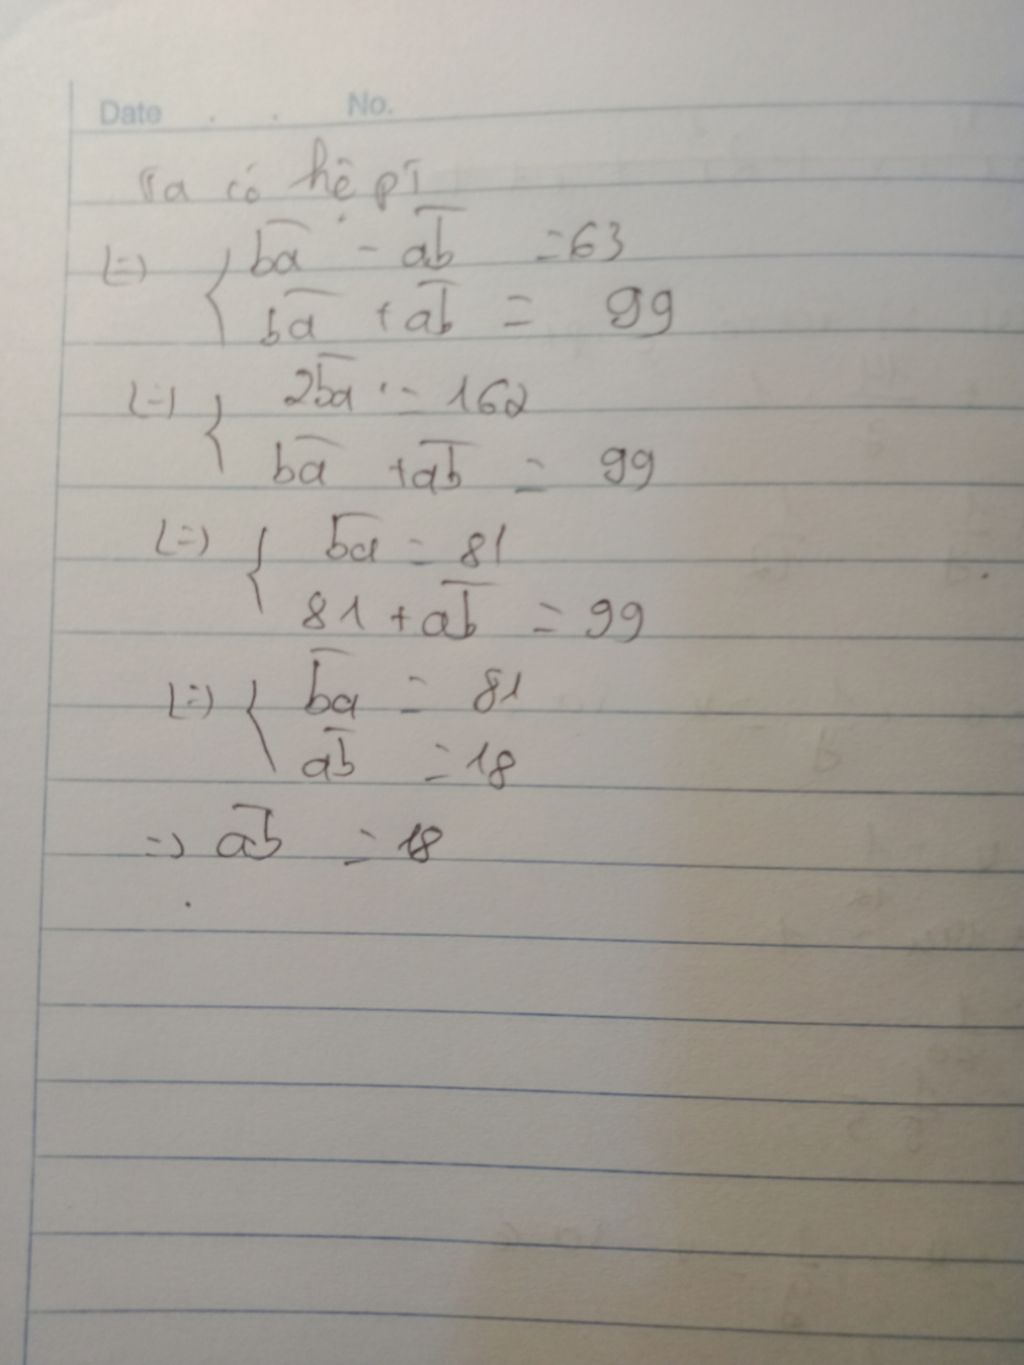 Date . . No.
Ta có hệ pt
(=) { \overline{ba} - \overline{ab} = 63
\overline{ba} + \overline{ab} = 99
(=) { 2\overline{ba} = 162
\overline{ba} + \overline{ab} = 99
(=) { \overline{ba} = 81
81 + \overline{ab} = 99
(=) { \overline{ba} = 81
\overline{ab} = 18
=) \overline{ab} = 18